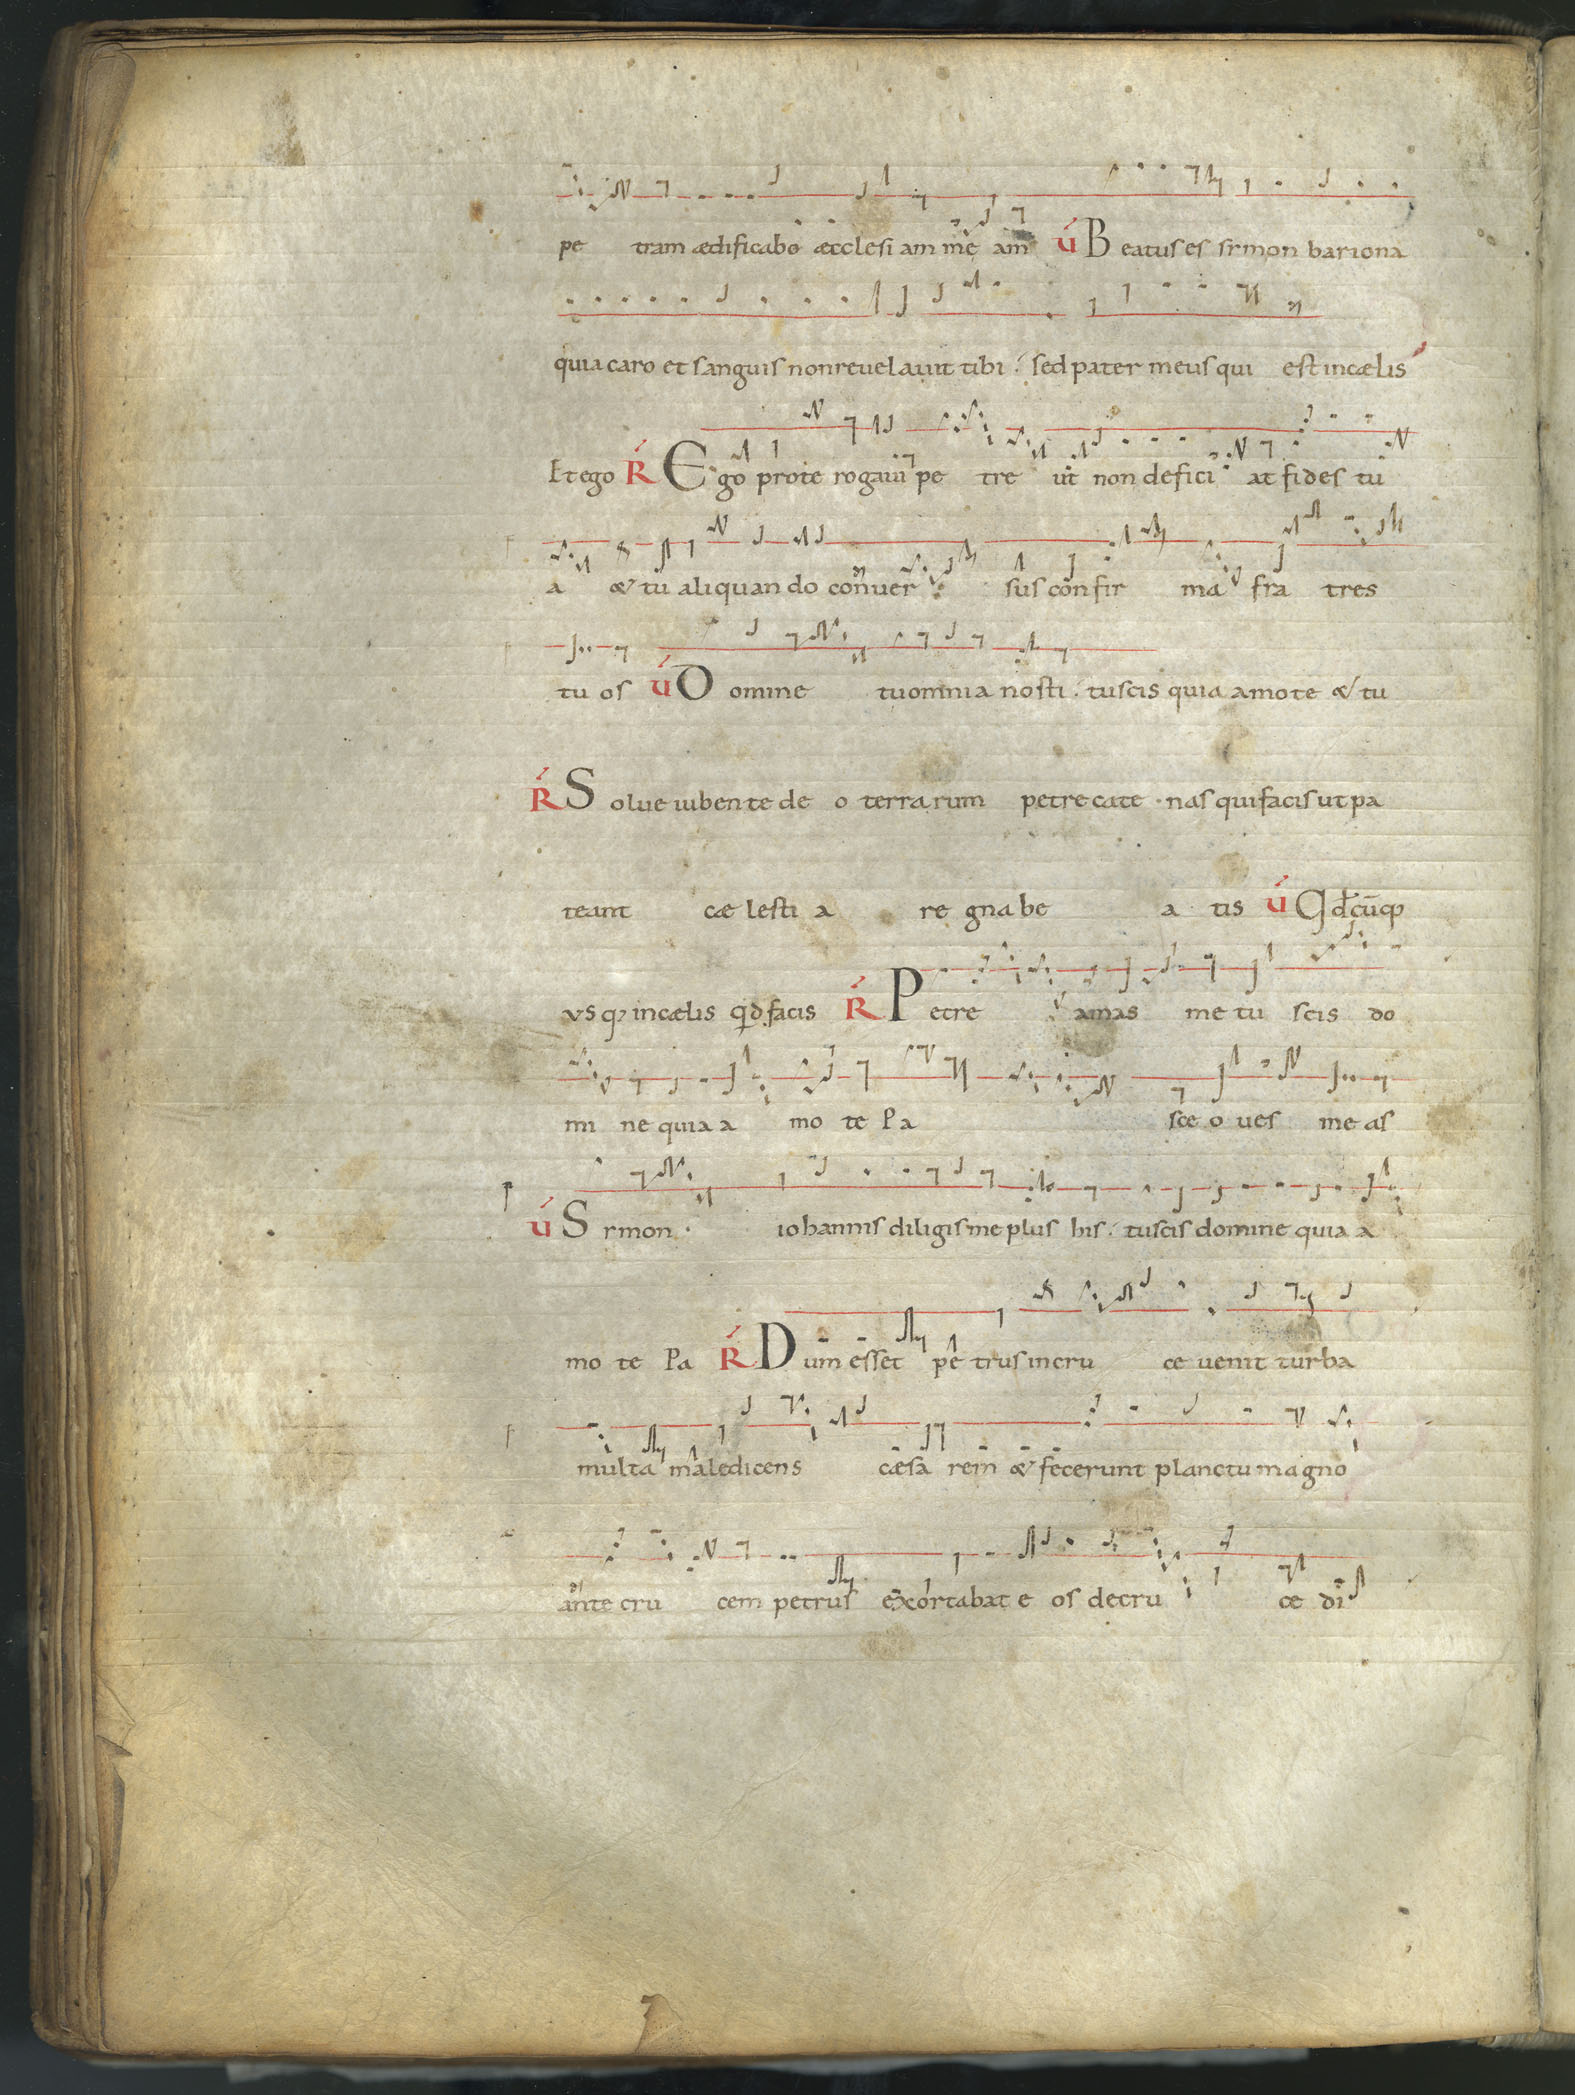 pe tram ædificabo æcclesi am me am V́ B eatus es sẏmon bariona
quia caro et sanguis non reuelauit tibi sed pater meus qui est in cælis
Et ego Ŕ E go pro te rogaui pe tre ut non defici at fides tu
a & tu aliquan do conuer sus confir ma fra tres
tu os V́ D omine tu omnia nosti tu scis quia amo te & tu
Ŕ S olue iubente de o terrarum petre cate nas qui facis ut pa
teant cæ lesti a re gna be a tis V́ Qđcūq;
vsq; in cælis qd facis Ŕ P etre amas me tu scis do
mi ne quia a mo te Pa sce o ues me as
V́ S ẏmon iohannis diligis me plus his tu scis domine quia a
mo te Pa Ŕ D um esset pe trus in cru ce uenit turba
multa maledicens cæsa rem & fecerunt planctu magno
ante cru cem petrus exortabat e os de cru ce di